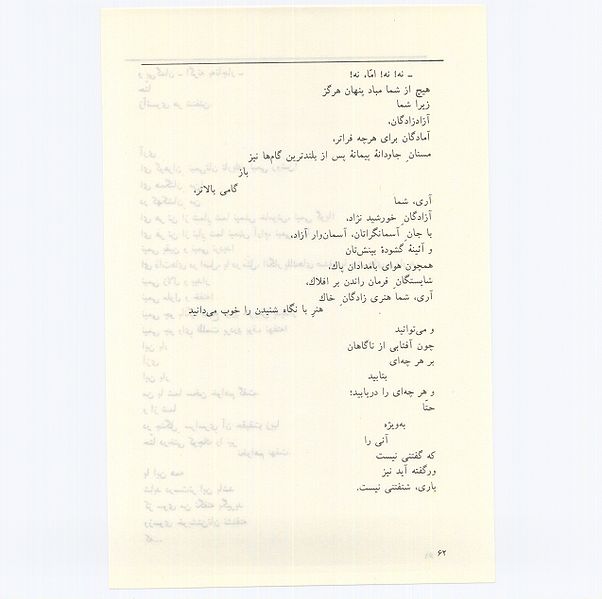 ـ نه! نه! امّا، نه!
هیچ از شما مباد پنهان هرگز
زیرا شما
آزادزادگان،
آمادگان برای هرچه فراتر،
مستانِ جاودانهٔ پیمانهٔ پس از بلندترین گام‌ها نیز
باز
گامی بالاتر،
آری، شما
آزادگانِ خورشید نژاد،
با جانِ آسمانگراتان، آسمان‌وار آزاد،
و آئینهٔ گشودهٔ بینش‌تان
همچون هوای بامدادان پاك،
شایستگانِ فرمان راندن بر افلاك،
آری، شما هنری زادگانِ خاك
هنرِ با نگاه شنیدن را خوب می‌دانید
و می‌توانید
چون آفتابی از ناگاهان
بر هر چه‌ای
بتابید
و هر چه‌ای را دریابید؛
حتّا
به‌ویژه
آنی را
که گفتنی نیست
ورگفته آید نیز
باری، شنفتنی نیست.
۶۲